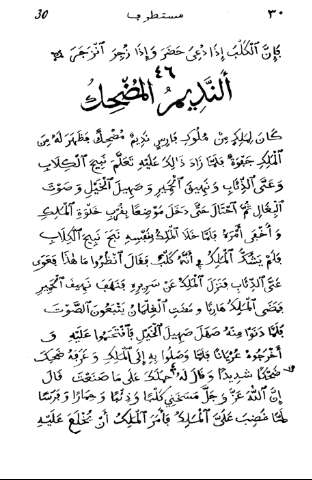 30 مستطرف ٣٠
فَإِنَّ ٱلْكَلْبَ إِذَا دُعِيَ حَضَرَ وَإِذَا زُجِرَ ٱنْزَجَرَ
٤٦
أَلنَّدِيمُ ٱلْمُضْحِكُ
كَانَ لِمَلِكٍ مِنْ مُلُوكِ فَارِسٍ نَدِيمٌ مُضْحِكٌ فَظَهَرَ لَهُ مِنَ
ٱلْمَلِكِ جَفْوَةٌ فَلَمَّا زَادَ ذَالِكَ عَلَيْهِ تَعَلَّمَ نَبِيحَ ٱلْكِلَابِ
وَعَتَى ٱلذِّئَابِ وَنَهِيقَ ٱلْحَمِيرِ وَصَهِيلَ ٱلْخَيْلِ وَصَوْتَ
ٱلْبِغَالِ ثُمَّ ٱحْتَالَ حَتَّى دَخَلَ مَوْضِعًا بِقُرْبِ خَلْوَةِ ٱلْمَلِكِ
وَ أَخْفَى أَمْرَهُ فَلَمَّا خَلَا ٱلْمَلِكُ بِنَفْسِهِ نَبَحَ نَبِيحَ ٱلْكِلَابِ
فَلَمْ يَشْكُكِ ٱلْمَلِكُ فِي أَنَّهُ كَلْبٌ فَقَالَ ٱنْظُرُوا مَا هَٰذَا فَعَوَى
عَتْيَ ٱلذِّئَابِ فَنَزَلَ ٱلْمَلِكُ عَنْ سَرِيرِهِ فَنَهَقَ نَهِيقَ ٱلْحَمِيرِ
فَمَضَى ٱلْمَلِكُ هَارِبًا وَ مَضَتِ ٱلْغِلْمَانُ يَتْبَعُونَ ٱلصَّوْتَ
فَلَمَّا دَنَوْا مِنْهُ صَهَلَ صَهِيلَ ٱلْخَيْلِ فَٱقْتَحَمُوا عَلَيْهِ وَ
أَخْرَجُوهُ عُرْيَانًا فَلَمَّا وَصَلُوا بِهِ إِلَى ٱلْمَلِكِ وَ عَرَفَهُ ضَحِكَ
ضِحْكًا شَدِيدًا وَ قَالَ لَهُ مَا حَمَلَكَ عَلَى مَا صَنَعْتَ قَالَ
إِنَّ ٱللّٰهَ عَزَّ وَ جَلَّ مَسَخَنِي كَلْبًا وَ ذِئْبًا وَ حِمَارًا وَ فَرَسًا
لَمَّا غَضِبَ عَلَيَّ ٱلْمَلِكُ فَأَمَرَ ٱلْمَلِكُ أَنْ يُخْلَعَ عَلَيْهِ